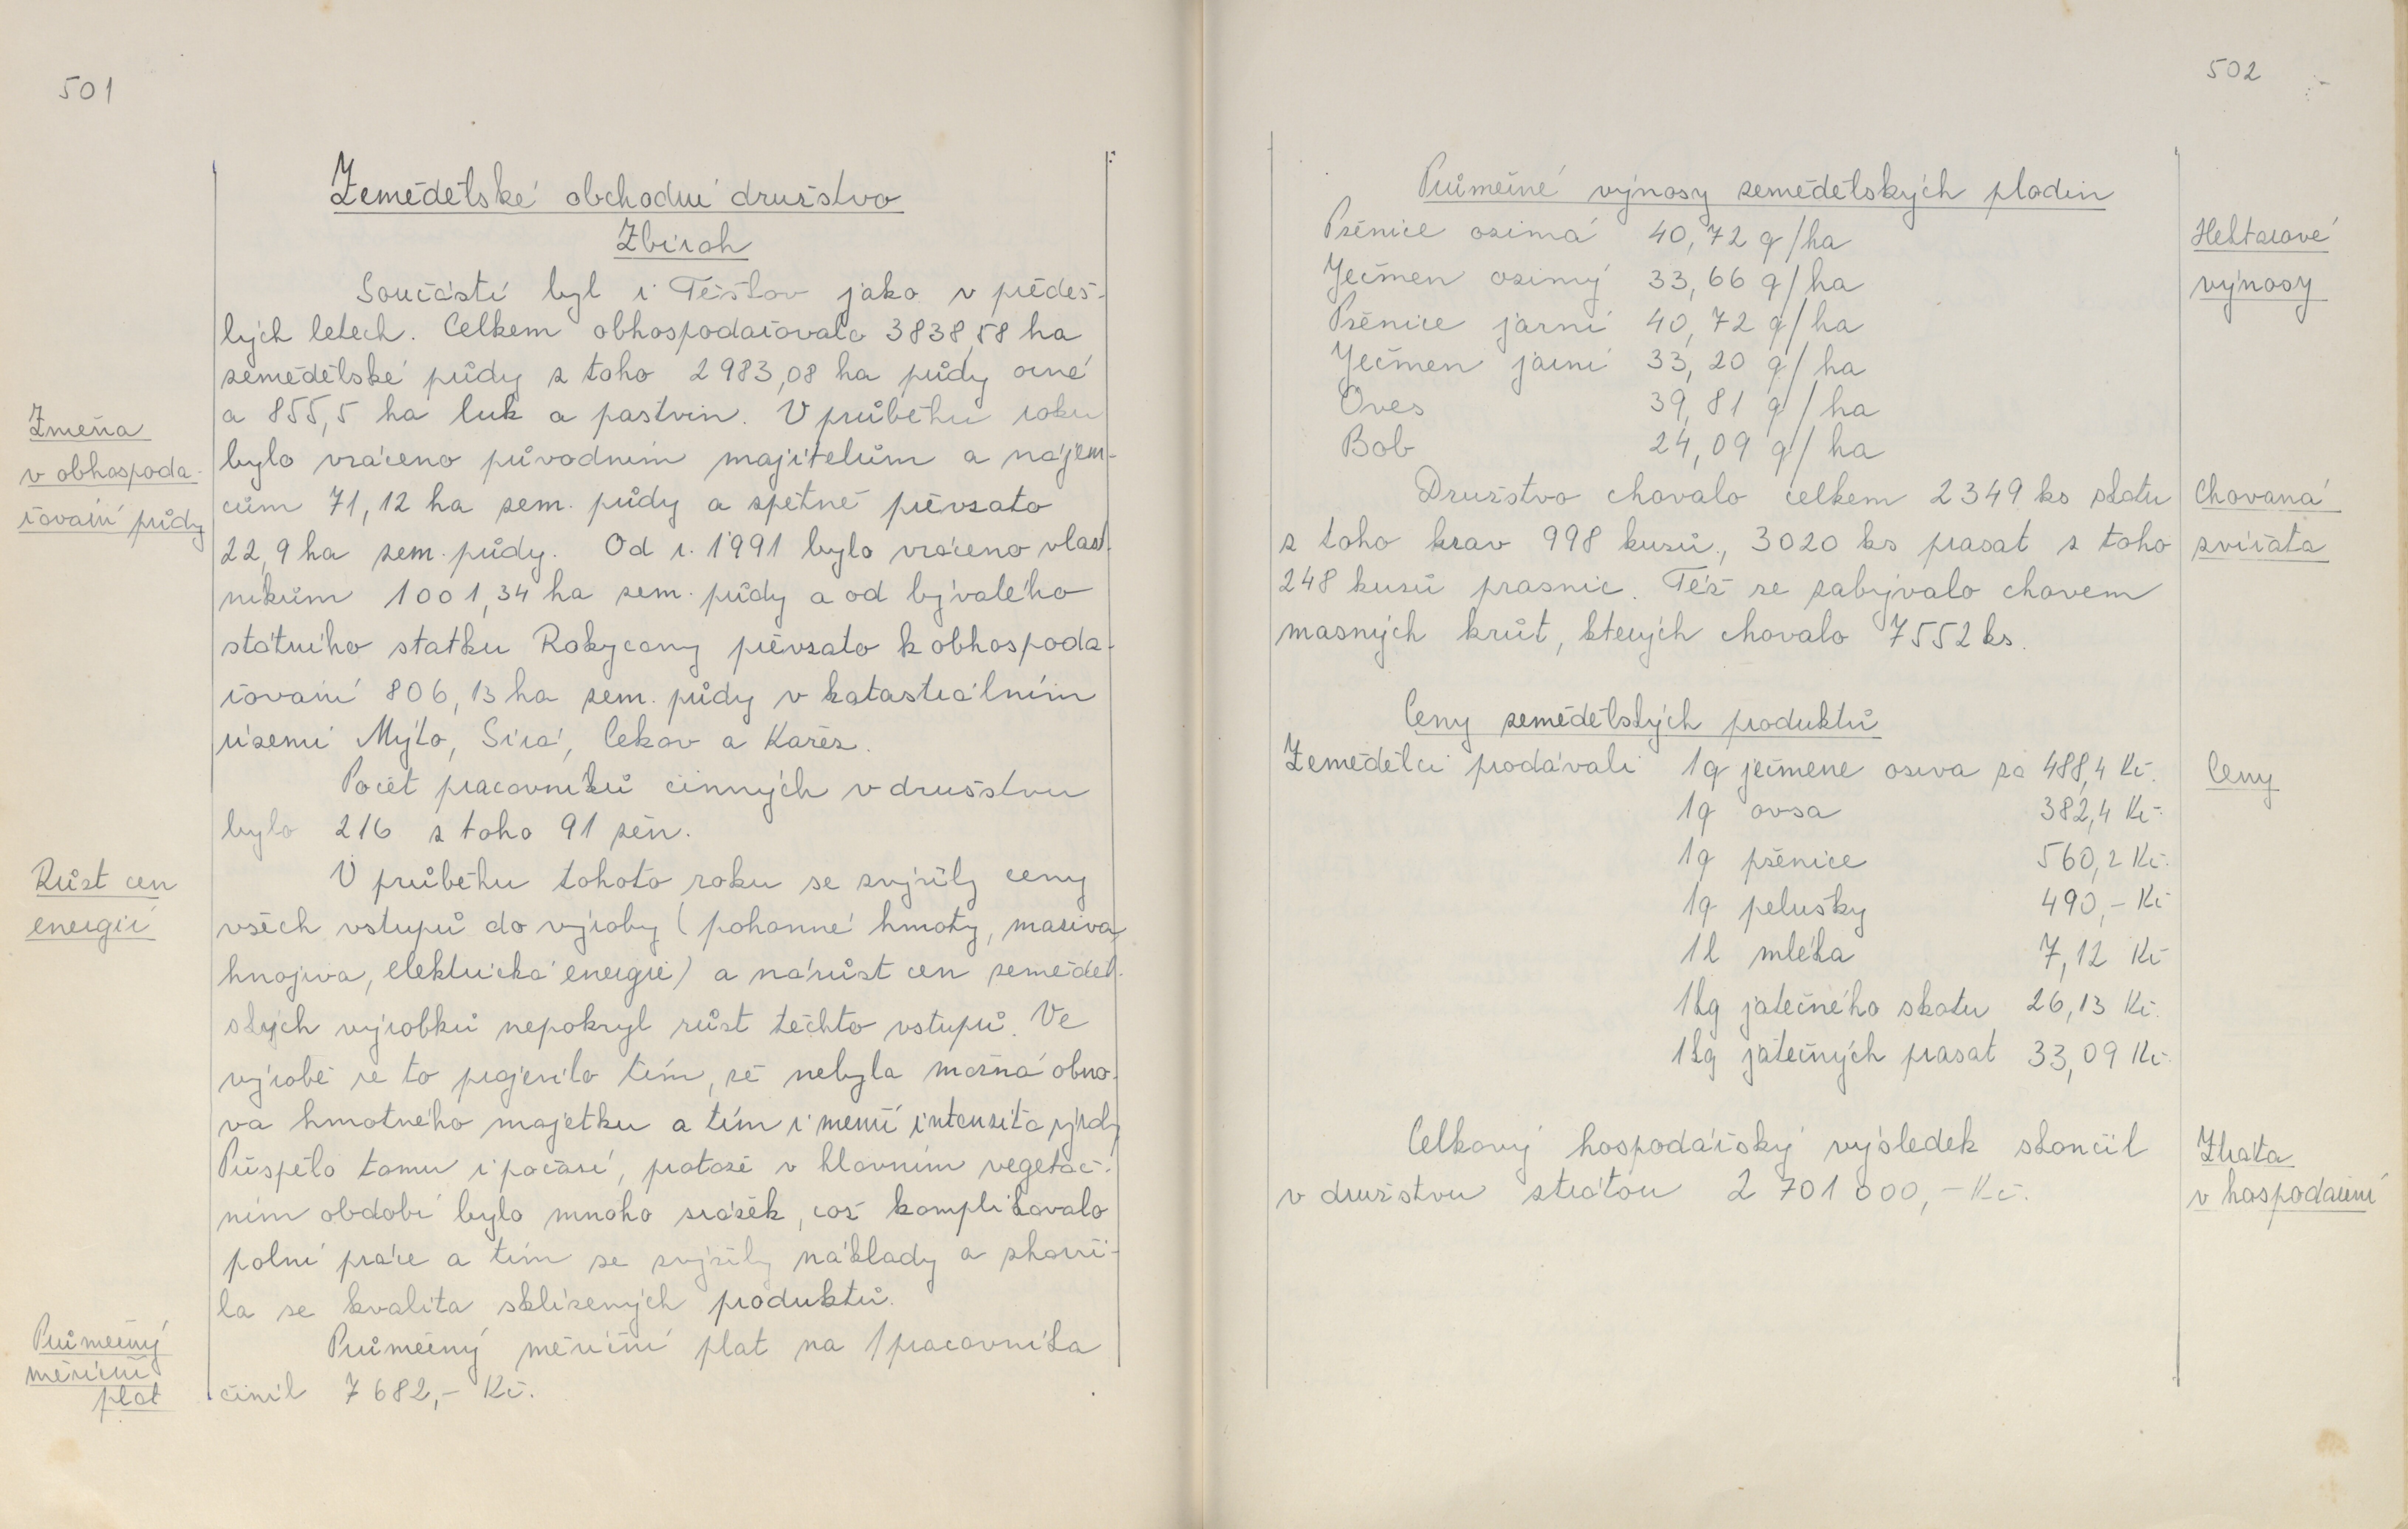 501
Zemědělské obchodní družstvo
Zbiroh
Součástí byl i Těškov jako v předeš-
lých letech. Celkem obhospodařovalo 3838,58 ha
zemědělské půdy z toho 2983,08 ha půdy orné
a 855,5 ha luk a pastvin. V průběhu roku
Změna
v obhospoda-
řování půdy
bylo vráceno původním majitelům a nájem-
cům 71,12 ha zem. půdy a zpětně převzato
22,9 ha zem. půdy. Od r. 1991 bylo vráceno vlast-
níkům 1001,34 ha zem. půdy a od bývalého
státního statku Rokycany převzato k obhospoda-
řování 806,13 ha zem. půdy v katastrálním
území Mýto, Sirá, Cekov a Kařez.
Počet pracovníků činných v družstvu
bylo 216 z toho 91 žen.
Růst cen
energií
V průběhu tohoto roku se zvýšily ceny
všech vstupů do výroby (pohonné hmoty, maziva,
hnojiva, elektrická energie) a nárůst cen zeměděl-
ských výrobků nepokryl růst těchto vstupů. Ve
výrobě se to projevilo tím, že nebyla možná obno-
va hmotného majetku a tím i menší intenzita výroby
Přispělo tomu i počasí, protože v hlavním vegetač-
ním období bylo mnoho srážek, což komplikovalo
polní práce a tím se zvýšily náklady a zhorši-
la se kvalita sklizených produktů.
Průměrný
měsíční
plat
Průměrný měsíční plat na 1 pracovníka
činil 7682,- Kč.
502
Průměrné výnosy zemědělských plodin
Hektarové
výnosy
Pšenice ozimá 40,72 q/ha
Ječmen ozimý 33,66 q/ha
Pšenice jarní 40,72 q/ha
Ječmen jarní 33,20 q/ha
Oves 39,81 q/ha
Bob 24,09 q/ha
Chovaná
zvířata
Družstvo chovalo celkem 2349 ks skotu
z toho krav 998 kusů, 3020 ks prasat z toho
248 kusů prasnic. Též se zabývalo chovem
masných krůt, kterých chovalo 7552 ks.
Ceny zemědělských produktů
Ceny
Zemědělci prodávali 1q ječmene osiva za 488,4 Kč.
1q ovsa 382,4 Kč.
1q pšenice 560,2 Kč.
1q pelušky 490,- Kč
1l mléka 7,12 Kč
1kg jatečného skotu 26,13 Kč.
1kg jatečných prasat 33,09 Kč.
Ztráta
v hospodaření
Celkový hospodářský výsledek skončil
v družstvu ztrátou 2 701 000,- Kč.